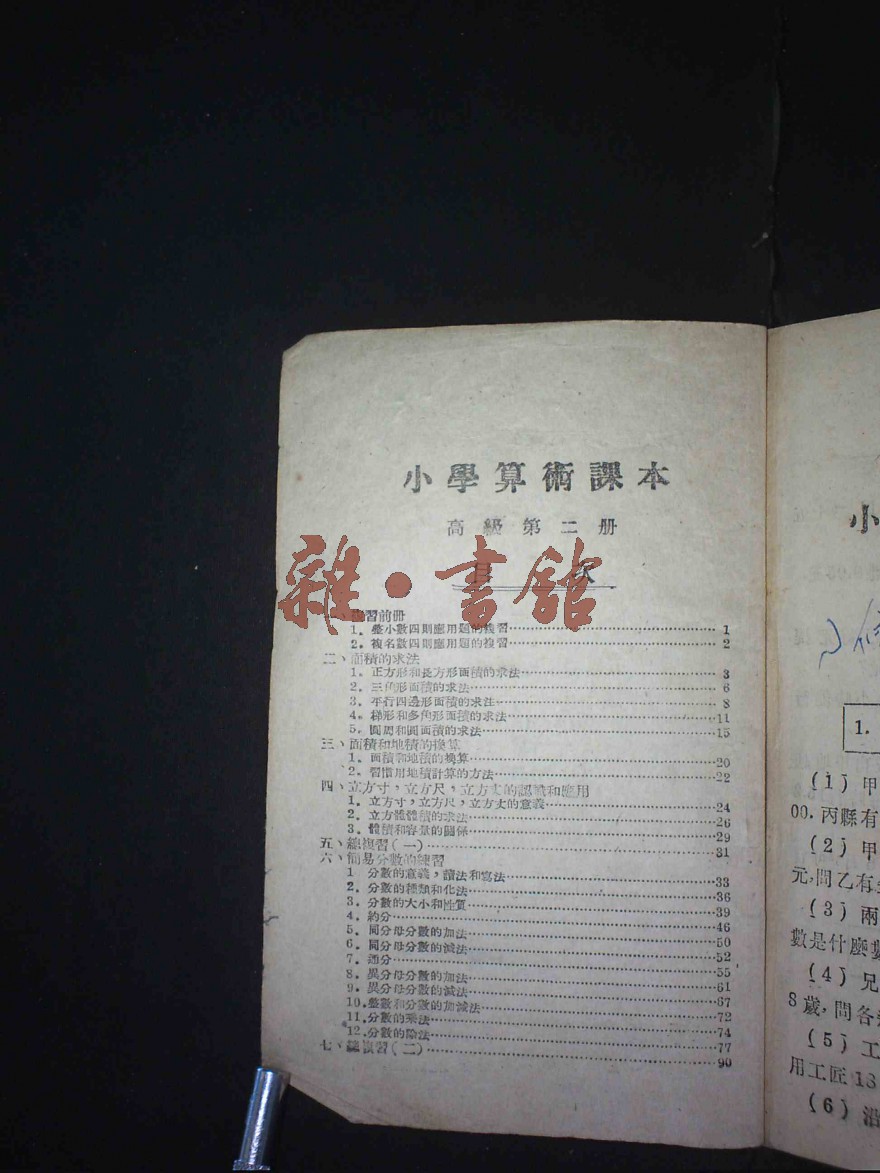 小學算術課本
高級第二册
目 次
一、複習前册
1. 整小數四則應用題的複習……1
2. 複名數四則應用題的複習……2
二、面積的求法
1. 正方形和長方形面積的求法……3
2. 三角形面積的求法……6
3. 平行四邊形面積的求法……8
4. 梯形和多角形面積的求法……11
5. 圓周和圓面積的求法……15
三、面積和地積的換算
1. 面積和地積的換算……20
2. 習慣用地積計算的方法……22
四、立方寸，立方尺，立方丈的認識和應用
1. 立方寸，立方尺，立方丈的意義……24
2. 立方體體積的求法……26
3. 體積和容量的關係……29
五、總複習(一)……31
六、簡易分數的練習
1 分數的意義，讀法和寫法……33
2. 分數的種類和化法……36
3. 分數的大小和性質……39
4. 約分……46
5. 同分母分數的加法……50
6. 同分母分數的減法……52
7. 通分……55
8. 異分母分數的加法……61
9. 異分母分數的減法……67
10. 整數和分數的加減法……72
11. 分數的乘法……74
12. 分數的除法……77
七、總複習(二)……90
雜·書館
小
1.
(1) 甲
00. 丙縣有
(2) 甲
元,問乙有
(3) 兩
數是什麼數
(4) 兄
8歲,問各
(5) 工
用工匠 13
(6) 沿